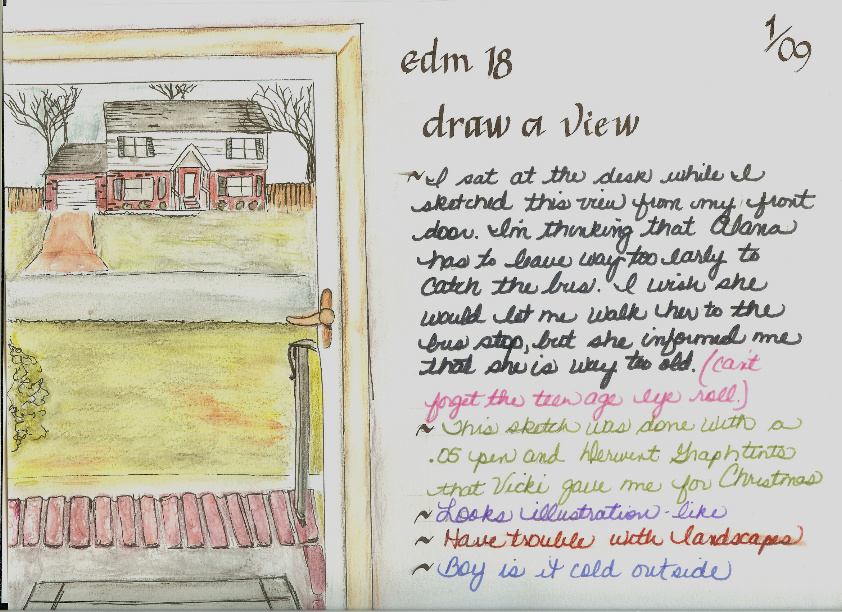 edm 18
1/09
draw a view
~I sat at the desk while I
sketched this view from my front
door. I'm thinking that Alana
has to leave way too early to
catch the bus. I wish she
would let me walk her to the
bus stop, but she informed me
that she is way too old. (can't
forget the teen age eye roll.)
~ This sketch was done with a
.05 pen and Derwent Graphtints
that Vicki gave me for Christmas
~ Looks illustration-like
~ Have trouble with landscapes
~ Boy is it cold outside